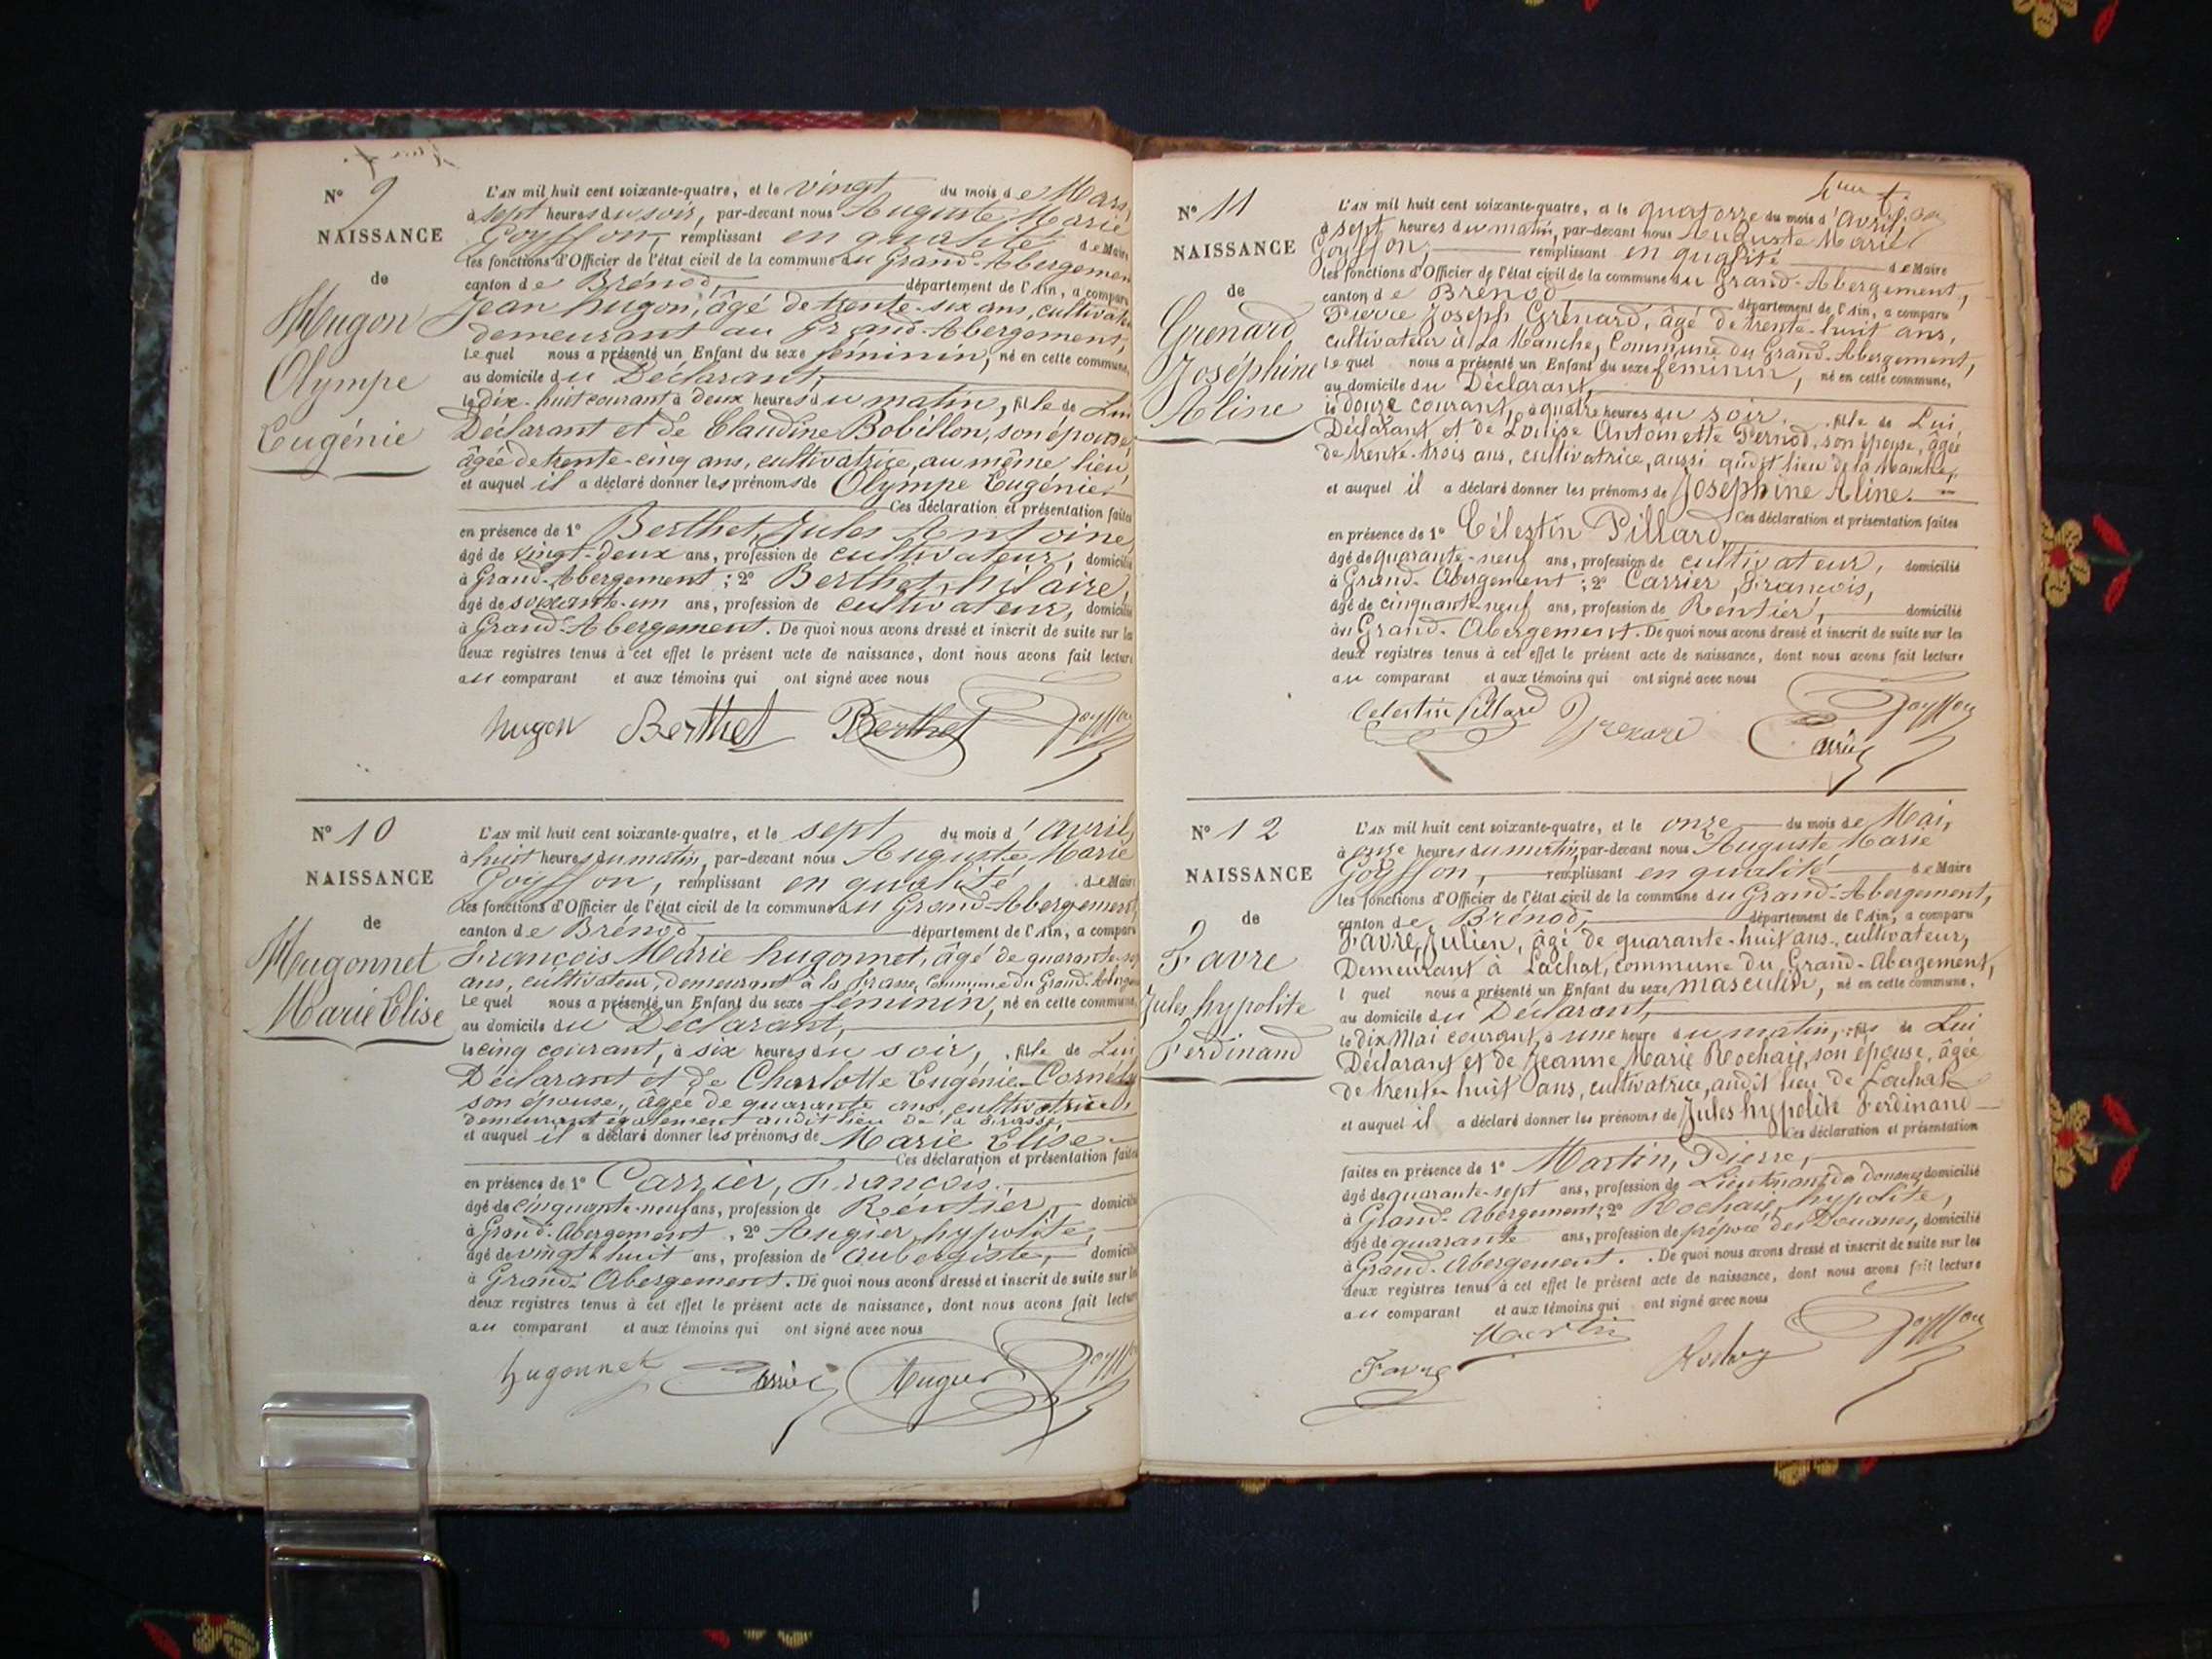 N° 9
NAISSANCE
de
Hugon
Olympe
Eugénie
L'AN mil huit cent soixante-quatre, et le vingt du mois de Mars,
à sept heures du soir, par-devant nous Auguste Marie
Goyffon, remplissant en qualité de Maire
les fonctions d'Officier de l'état civil de la commune du Grand-Abergement
canton de Brénod, département de l'Ain, a comparu
Jean hugon, âgé de trente-six ans, cultivateur
demeurant au Grand-Abergement,
Lequel nous a présenté un Enfant du sexe féminin, né en cette commune,
au domicile du Déclarant,
le dix-huit courant à deux heures du matin, fille de Lui
Déclarant et de Claudine Bobillon, son épouse,
âgée de trente-cinq ans, cultivatrice, au même lieu,
et auquel il a déclaré donner les prénoms de Olympe Eugénie.
Ces déclaration et présentation faites
en présence de 1° Berthet, Jules Antoine,
âgé de vingt-deux ans, profession de cultivateur, domicilié
à Grand-Abergement; 2° Berthet, hilaire,
âgé de soixante-un ans, profession de cultivateur, domicilié
à Grand-Abergement. De quoi nous avons dressé et inscrit de suite sur les
deux registres tenus à cet effet le présent acte de naissance, dont nous avons fait lecture
au comparant et aux témoins qui ont signé avec nous
hugon Berthet Berthet Goyffon
N° 10
NAISSANCE
de
Hugonnet
Marie Elise
L'AN mil huit cent soixante-quatre, et le sept du mois d'avril,
à huit heures du matin, par-devant nous Auguste Marie
Goyffon, remplissant en qualité de Maire
les fonctions d'Officier de l'état civil de la commune du Grand-Abergement,
canton de Brénod, département de l'Ain, a comparu
François Marie hugonnet, âgé de quarante-
ans, cultivateur, demeurant à la Commune du Grand-Abergement
Lequel nous a présenté un Enfant du sexe féminin, né en cette commune,
au domicile du Déclarant,
le cinq courant, à six heures du soir, fille de Lui
Déclarant et de Charlotte Eugénie
son épouse, âgée de quarante ans, cultivatrice,
demeurant également audit lieu de la
et auquel il a déclaré donner les prénoms de Marie Elise
Ces déclaration et présentation faites
en présence de 1° Carrier, François,
âgé de cinquante-neuf ans, profession de Rentier, domicilié
à Grand-Abergement, 2° Augier, hypolite,
âgé de vingt huit ans, profession de Aubergiste, domicilié
à Grand-Abergement. De quoi nous avons dressé et inscrit de suite sur les
deux registres tenus à cet effet le présent acte de naissance, dont nous avons fait lecture
au comparant et aux témoins qui ont signé avec nous
hugonnet Carrier Augier Goyffon
N° 11
NAISSANCE
de
Grenard
Joséphine
Aline
L'AN mil huit cent soixante-quatre, et le quatorze du mois d'avril,
à sept heures du matin, par-devant nous Auguste Marie
Goyffon, remplissant en qualité de Maire
les fonctions d'Officier de l'état civil de la commune du Grand-Abergement,
canton de Brénod département de l'Ain, a comparu
Pierre Joseph Grenard, âgé de trente-huit ans,
cultivateur à La Manche, Commune du Grand-Abergement,
lequel nous a présenté un Enfant du sexe féminin, né en cette commune,
au domicile du Déclarant,
le douze courant, à quatre heures du soir, fille de Lui,
Déclarant et de Louise Antoinette Pernod, son épouse, âgée
de trente-trois ans, cultivatrice, aussi audit lieu de la Manche,
et auquel il a déclaré donner les prénoms de Joséphine Aline.
Ces déclaration et présentation faites
en présence de 1° Célestin Pillard,
âgé de quarante-neuf ans, profession de cultivateur, domicilié
à Grand-Abergement; 2° Carrier, François,
âgé de cinquante-neuf ans, profession de Rentier, domicilié
au Grand-Abergement. De quoi nous avons dressé et inscrit de suite sur les
deux registres tenus à cet effet le présent acte de naissance, dont nous avons fait lecture
au comparant et aux témoins qui ont signé avec nous
Celestin Pillard Grenard Carrier Goyffon
N° 12
NAISSANCE
de
Favre
Jules hypolite
Ferdinand
L'AN mil huit cent soixante-quatre, et le onze du mois de Mai,
à onze heures du matin, par-devant nous Auguste Marie
Goyffon, remplissant en qualité de Maire
les fonctions d'Officier de l'état civil de la commune du Grand-Abergement,
canton de Brénod, département de l'Ain, a comparu
Favre, Julien, âgé de quarante-huit ans, cultivateur,
Demeurant à Lachat, commune du Grand-Abergement,
l quel nous a présenté un Enfant du sexe masculin, né en cette commune,
au domicile du Déclarant,
le dix Mai courant, à une heure du matin, fils de Lui
Déclarant et de Jeanne Marie Rochaix, son épouse, âgée
de trente-huit ans, cultivatrice, audit lieu de Lachat
et auquel il a déclaré donner les prénoms de Jules hypolite Ferdinand
Ces déclaration et présentation
faites en présence de 1° Martin, Pierre,
âgé de quarante-sept ans, profession de Lieutenant de douanes, domicilié
à Grand-Abergement; 2° Rochaix, hypolite,
âgé de quarante ans, profession de préposé des Douanes, domicilié
à Grand-Abergement. De quoi nous avons dressé et inscrit de suite sur les
deux registres tenus à cet effet le présent acte de naissance, dont nous avons fait lecture
au comparant et aux témoins qui ont signé avec nous
Martin
Favre Goyffon